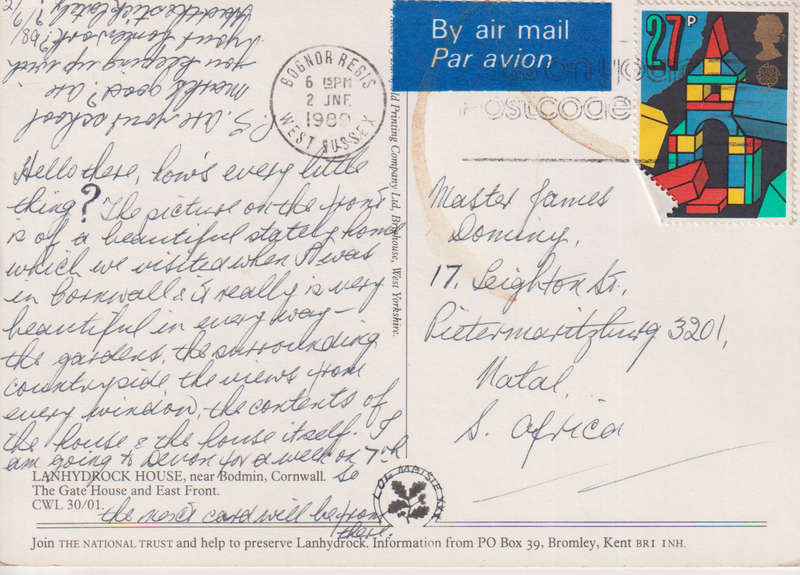 By air mail
Par avion
27P
BOGNOR REGIS
6 15PM
2 JNE
1989
WEST SUSSEX
postcode
P.S. Are your school
marks good? Are
you keeping up with
your homework?
Hello there, how's every little
thing? The picture on the front
is of a beautiful stately home
which we visited when I was
in Cornwall & it really is very
beautiful in every way –
the gardens, the surrounding
countryside the views from
every window, the contents of
the house & the house itself. I
am going to Devon for a week on 7th
so
the next card will be from
there.
LOL MAISIE XXX
Master James
Dominy,
17. Leighton St.,
Pietermaritzburg 3201,
Natal,
S. Africa
ld Printing Company Ltd, Brighouse, West Yorkshire.
LANHYDROCK HOUSE, near Bodmin, Cornwall.
The Gate House and East Front.
CWL 30/01.
Join THE NATIONAL TRUST and help to preserve Lanhydrock. Information from PO Box 39, Bromley, Kent BR1 1NH.